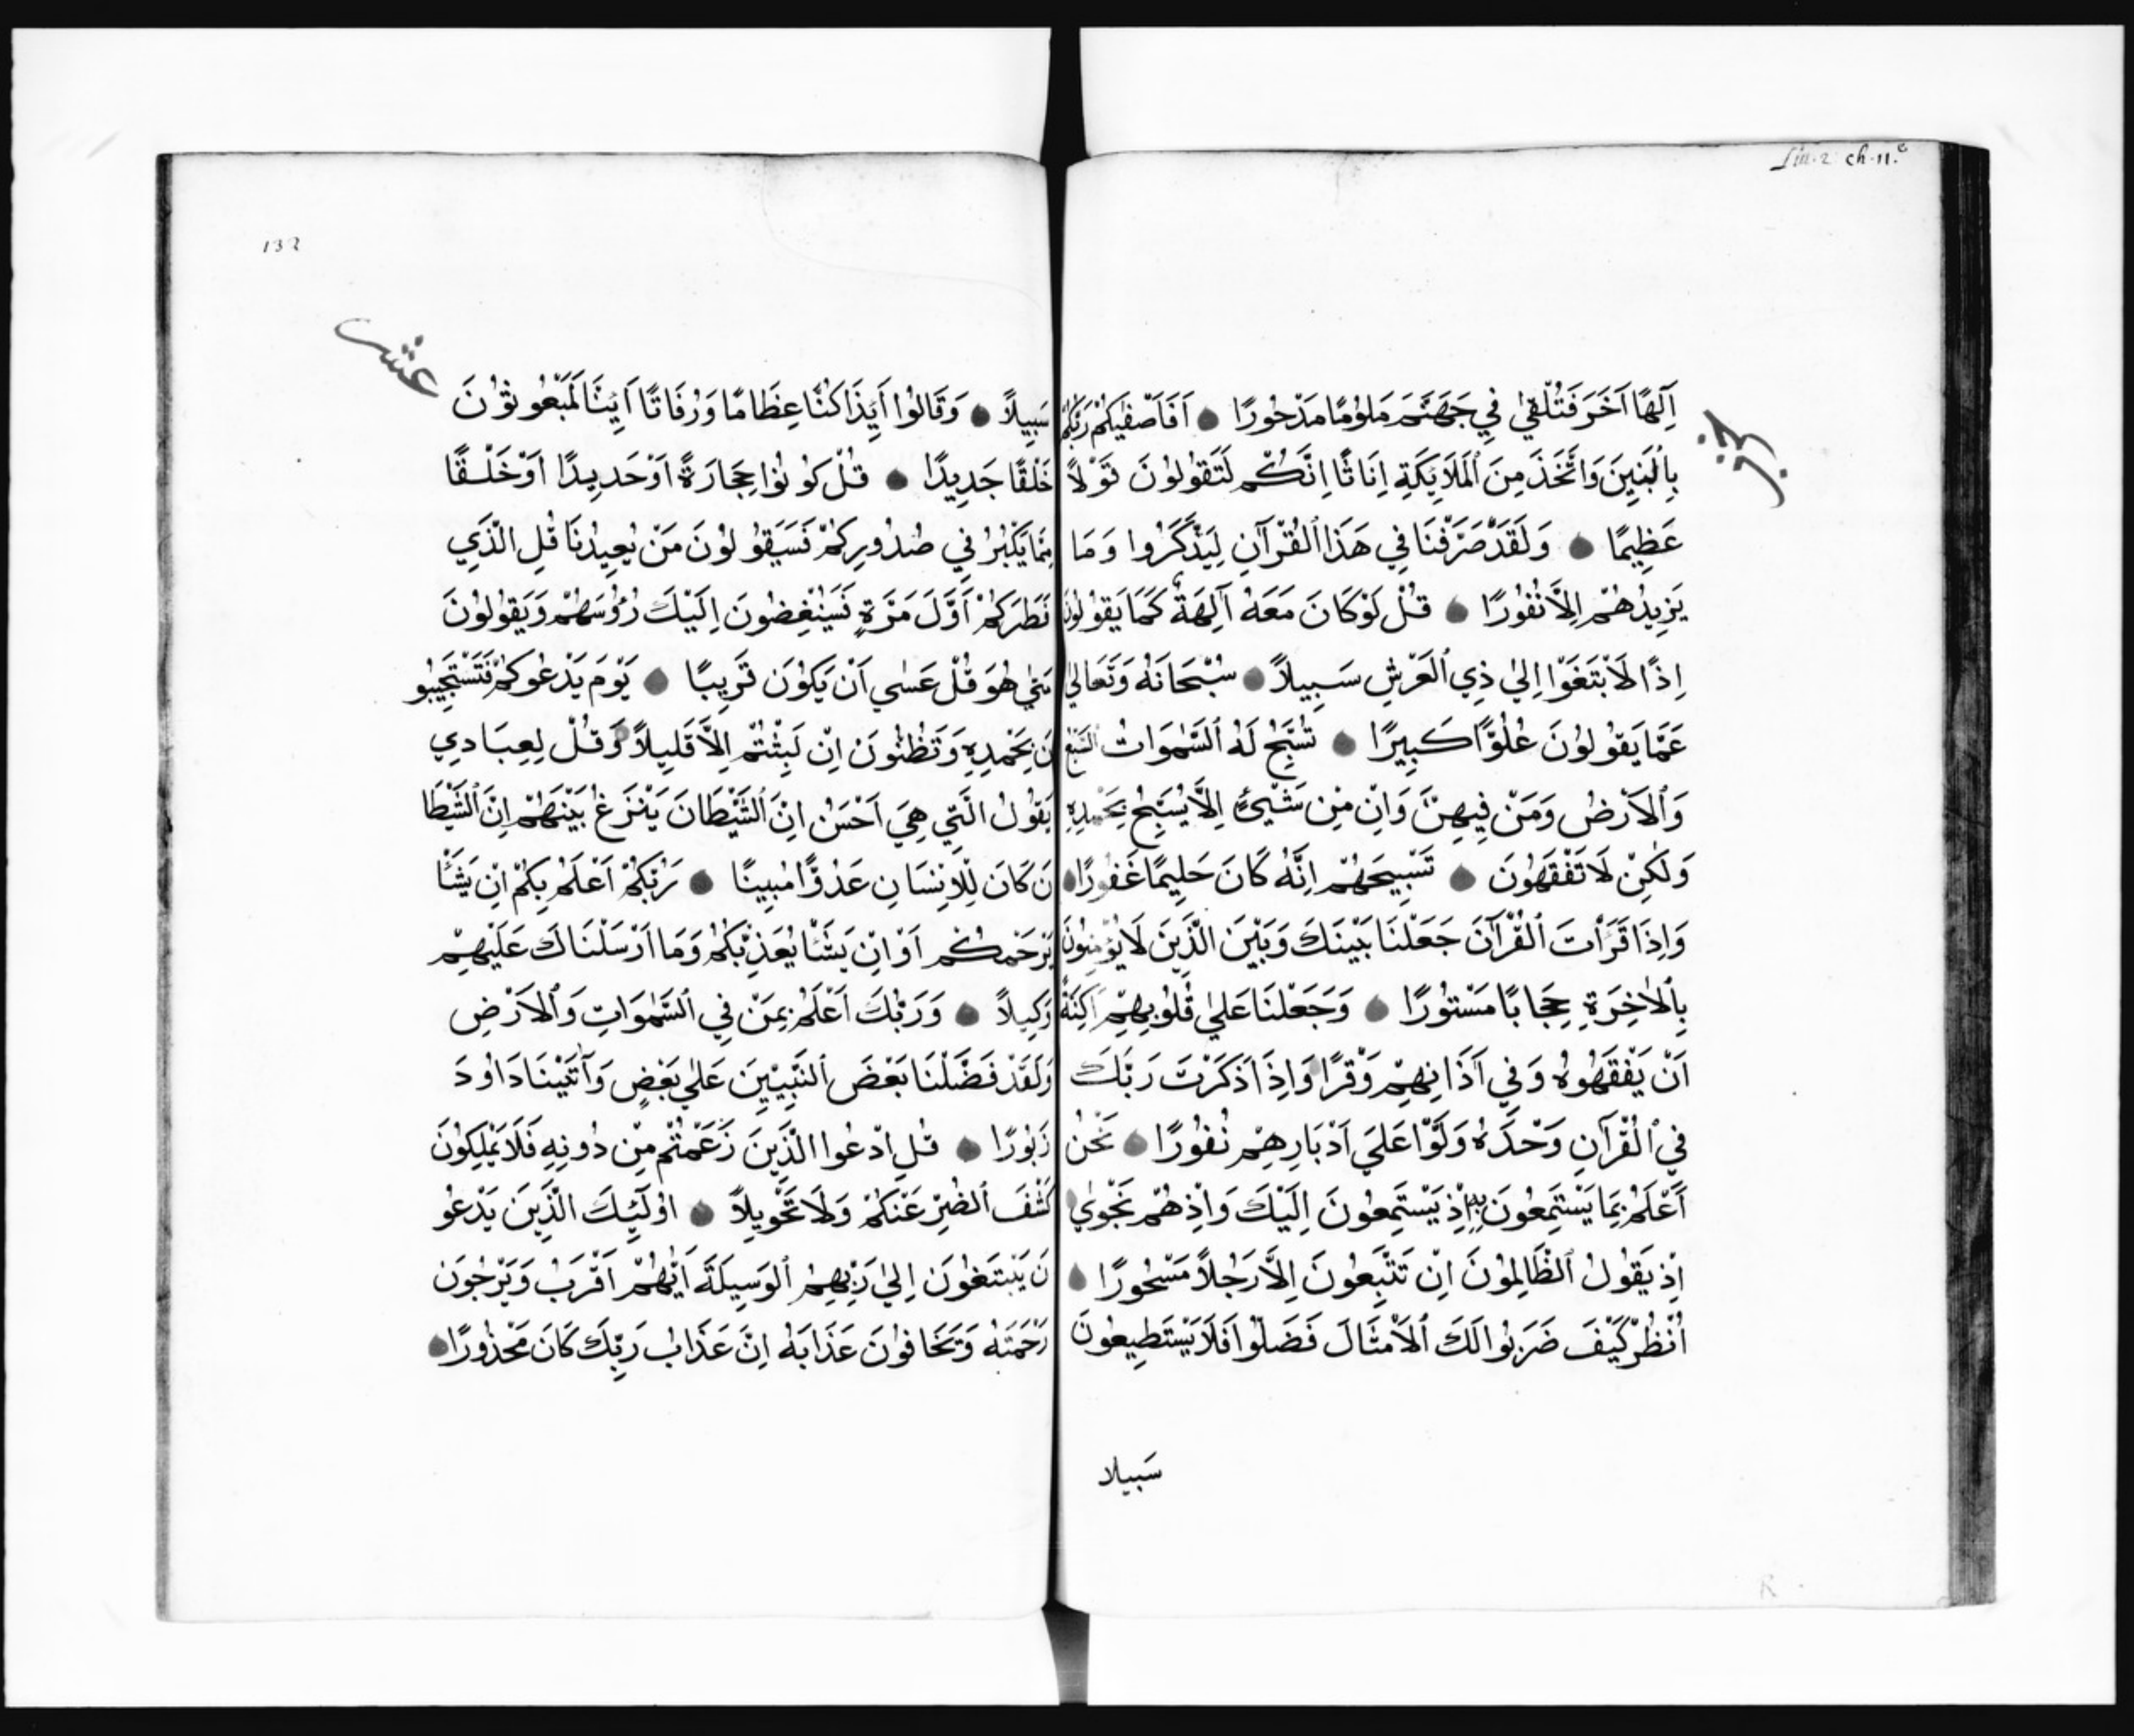 Liii. 2 ch. 11.e
حزب
آِلَهًا آخَرَ فَتُلْقٰي فِي جَهَنَّمَ مَلوُمًا مَدْحوُرًا ● اَفَاَصْفٰيكُمْ رَبُّكُمْ
بِاْلبَنِينَ وَاتَّخَذَ مِنَ اْلمَلَائِكَةِ اِنَاثًا اِنَّكُمْ لَتَقوُلوُنَ قَوْلاً
عَظِيمًا ● وَلَقَدْ صَرَّفْنَا فِي هَذَا اْلقُرْآنِ لِيَذَّكَّرُوا وَمَا
يَزِيدُهُمْ اِلاَّ نُفُورًا ● قُلْ لَوْ كَانَ مَعَهُ آلِهَةٌ كَمَا يَقوُلوُنَ
اِذًا لَابْتَغَوْا اِليٰ ذِي اْلعَرْشِ سَبِيلاً ● سُبْحَانَهُ وَتَعَاليٰ
عَمَّا يَقوُلوُنَ عُلُوًّا كَبِيرًا ● تُسَبِّحُ لَهُ السَّمٰوَاتُ السَّبْعُ
وَاْلاَرْضُ وَمَنْ فِيهِنَّ وَاِنْ مِنْ شَيْئٍ اِلاَّ يُسَبِّحُ بِحَمْدِهِ
وَلٰكِنْ لَا تَفْقَهُونَ ● تَسْبِيحَهُمْ اِنَّهُ كَانَ حَلِيمًا غَفُورًا ●
وَاِذَا قَرَأْتَ اْلقُرْآنَ جَعَلْنَا بَيْنَكَ وَبَيْنَ الَّذِينَ لَا يُؤْمِنوُنَ
بِاْلاٰخِرَةِ حِجَابًا مَسْتوُرًا ● وَجَعَلْنَا عَليٰ قُلوُبِهِمْ اَكِنَّةً
اَنْ يَفْقَهُوهُ وَفِي آذَانِهِمْ وَقْرًا وَاِذَا ذَكَرْتَ رَبَّكَ
فِي اْلقُرْآنِ وَحْدَهُ وَلَّوْا عَلَي اَدْبَارِهِمْ نُفُورًا ● نَحْنُ
اَعْلَمُ بِمَا يَسْتَمِعُونَ بِهِ اِذْ يَسْتَمِعُونَ اِلَيْكَ وَاِذْ هُمْ نَجْويٰ
اِذْ يَقوُلُ الظَّالِموُنَ اِنْ تَتَّبِعُونَ اِلاَّ رَجُلاً مَسْحُورًا ●
اُنْظُرْ كَيْفَ ضَرَبوُا لَكَ اْلاَمْثَالَ فَضَلّوُا فَلَا يَسْتَطِيعوُنَ
سَبيلا
132
عشر
سَبِيلاً ● وَقَالوُا اَئِذَا كُنَّا عِظَامًا وَرُفَاتًا اَئِنَّا لَمَبْعُوثوُنَ
خَلْقًا جَدِيدًا ● قُلْ كوُنوُا حِجَارَةً اَوْ حَدِيدًا اَوْ خَلْقًا
مِمَّا يَكْبُرُ فِي صُدُورِكُمْ فَسَيَقوُلوُنَ مَنْ يُعِيدُنَا قُلِ الَّذِي
فَطَرَكُمْ اَوَّلَ مَرَّةٍ فَسَيُنْغِضُونَ اِلَيْكَ رُؤُسَهُمْ وَيَقوُلوُنَ
مَتٰي هُوَ قُلْ عَسٰي اَنْ يَكوُنَ قَرِيبًا ● يَوْمَ يَدْعُوكُمْ فَتَسْتَجِيبُو
نَ بِحَمْدِهِ وَتَظُنُّونَ اِنْ لَبِثْتُمْ اِلاَّ قَلِيلاً ● وَقُلْ لِعِبَادِي
يَقوُلُ الَّتِي هِيَ اَحْسَنُ اِنَّ الشَّيْطَانَ يَنْزَغُ بَيْنَهُمْ اِنَّ الشَّيْطَا
نَ كَانَ لِلْاِنْسَانِ عَدُوًّا مُبِينًا ● رَبُّكُمْ اَعْلَمُ بِكُمْ اِنْ يَشَأْ
يَرْحَمْكُمْ اَوْ اِنْ يَشَأْ يُعَذِّبْكُمْ وَمَا اَرْسَلْنَاكَ عَلَيْهِمْ
وَكِيلاً ● وَرَبُّكَ اَعْلَمُ بِمَنْ فِي السَّمٰوَاتِ وَاْلاَرْضِ
وَلَقَدْ فَضَّلْنَا بَعْضَ النَّبِيّينَ عَليٰ بَعْضٍ وَآتَيْنَا دَاوُدَ
زَبوُرًا ● قُلِ ادْعُوا الَّذِينَ زَعَمْتُمْ مِنْ دُونِهِ فَلَا يَمْلِكُونَ
كَشْفَ الضُّرِّ عَنْكُمْ وَلَا تَحْوِيلاً ● اوُلَئِكَ الَّذِينَ يَدْعُو
نَ يَبْتَغوُنَ اِليٰ رَبِّهِمُ اْلوَسِيلَةَ اَيُّهُمْ اَقْرَبُ وَيَرْجُونَ
رَحْمَتَهُ وَيَخَافوُنَ عَذَابَهُ اِنَّ عَذَابَ رَبِّكَ كَانَ مَحْذُورًا ●